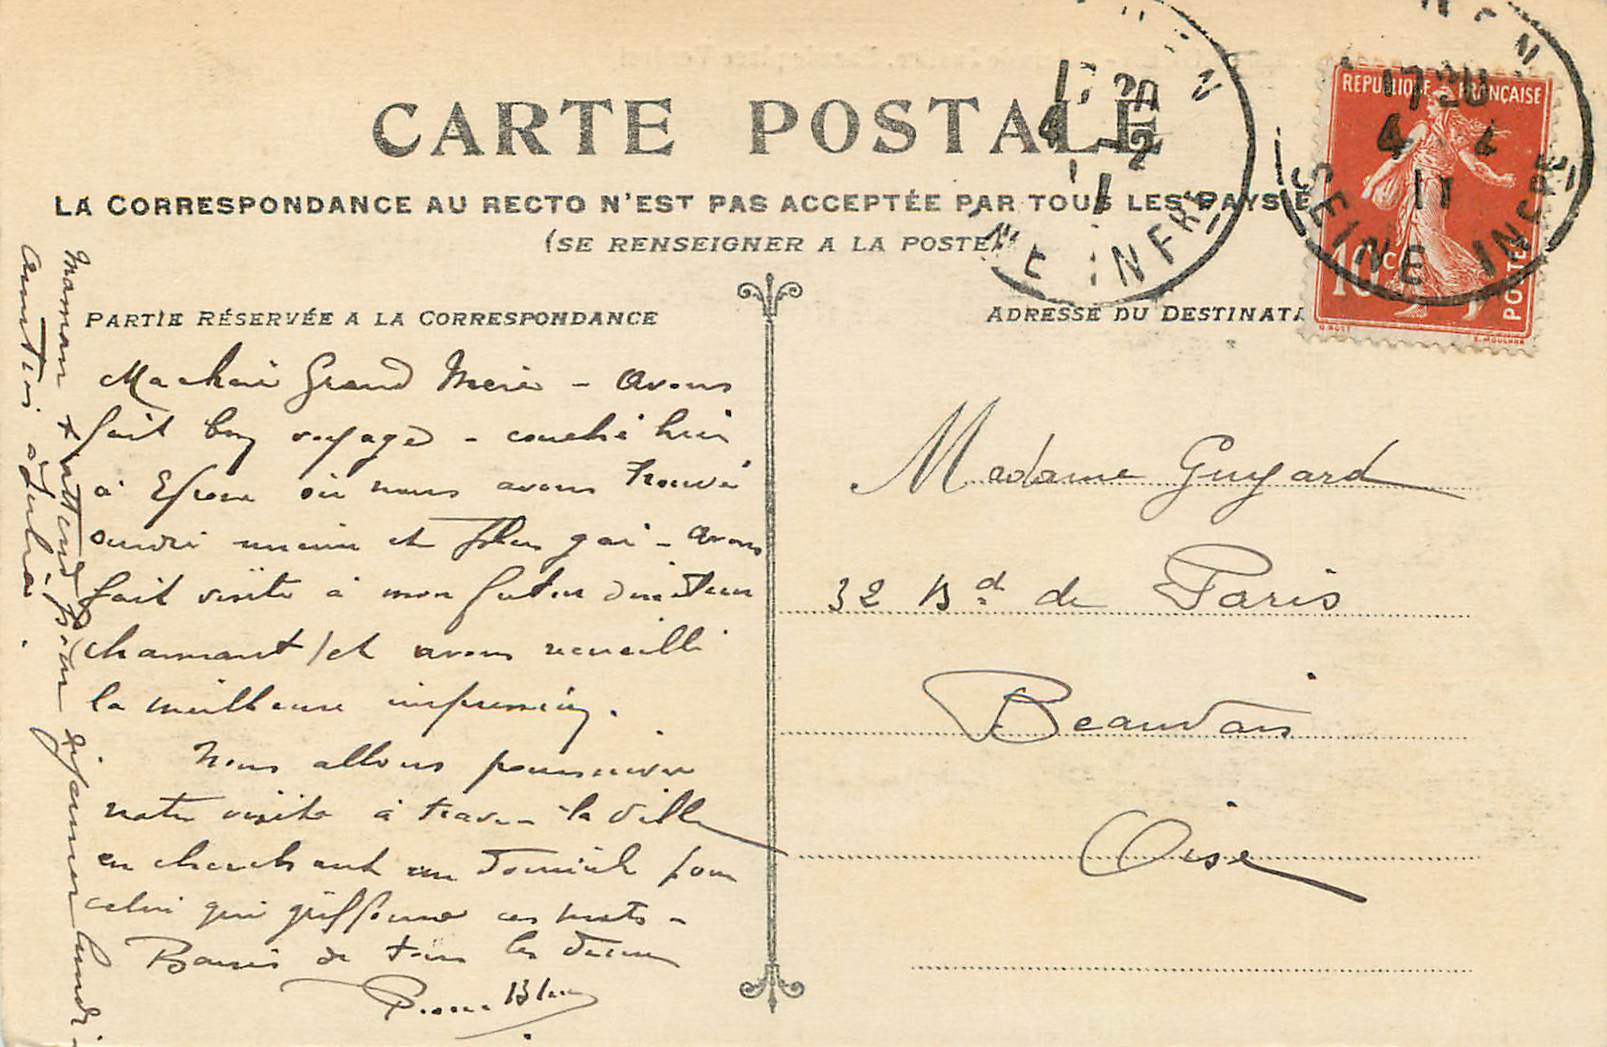 CARTE POSTALE
LA CORRESPONDANCE AU RECTO N'EST PAS ACCEPTÉE PAR TOUS LES PAYS E
(SE RENSEIGNER A LA POSTE)
PARTIE RÉSERVÉE A LA CORRESPONDANCE
ADRESSE DU DESTINATA
RÉPUBLIQUE FRANÇAISE
10 c
POSTES
17 20
4 - 4
11
SEINE INFRE
17 20
4 - 2
NE INFRE
Ma chère Grand Mère - Avons
fait bon voyage - couché hier
à où nous avons trouvé
André et plus gai - avons
fait visite à mon futur directeur
charmant et avons recueilli
la meilleure impression.
Nous allons poursuivre
notre visite à travers la ville
en cherchant un domicile pour
celui qui griffonne ces mots -
Baisers de tous les deux
Pierre
Maman t'attend pour déjeuner lundi -
amitiés à Julia.
Madame Guyard
32 Bd de Paris
Beauvais
Oise